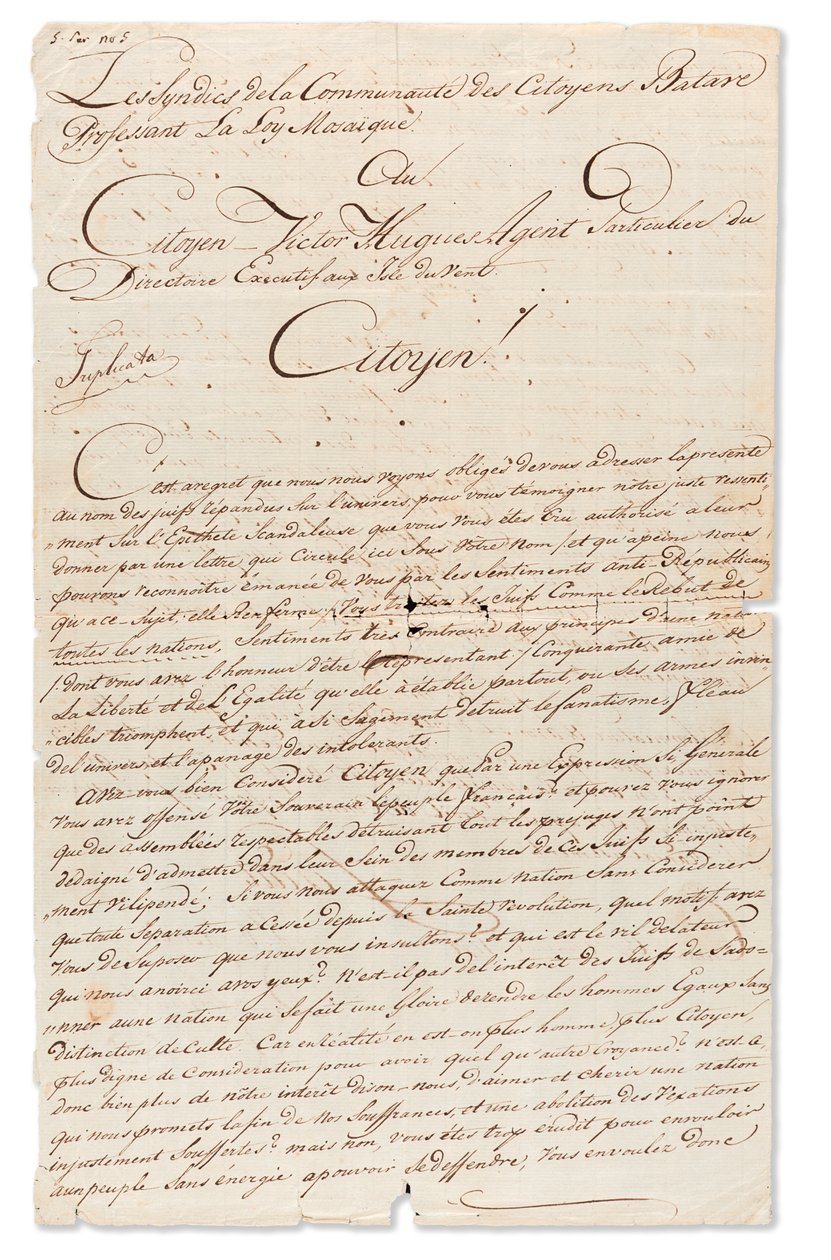 5. Ser no 5
Les Syndics de la Communauté des Citoyens Batave
Professant La Loy Mosaïque.
Au
Citoyen - Victor Hugues Agent Particulier du
Directoire Executif aux Isle du Vent.
Citoyen!
Triplicata
C'est a regret que nous nous voyons obligés de vous adresser la presente
au nom des juifs répandus sur l'univers, pour vous témoigner nôtre juste ressenti-
"ment sur l'Epithete Scandaleuse que vous vous étes cru authorisé a leur
donner par une lettre qui Circule ici sous Vôtre Nom / et qu'apeine nous
pouvons reconnoitre émanée de vous par les Sentiments anti-Républicain
qu'ace-Sujet, elle Renferme / Vous traiter les Juifs Comme le Rebut de
toutes les nations, Sentiments très contraire aux principes d'une nation
/ dont vous avez l'honneur d'être le représentant / Conquerante, amie de
La Liberté et de L'Egalité qu'elle à établie partout, ou ses armes invin
"cibles triomphent, et qui a si Sagement detruit le fanatisme, fléau
del'univers et l'apanage des intolerants.
Avez-vous bien Consideré Citoyen que Par une Expression Si Générale
Vous avez offensé Vôtre Souverain le peuple français? et pouvez vous ignorer
que des assemblées respectables detruisant tout les prejugés n'ont point
dedaigné d'admettre dans leur Sein des membres de ces Juifs Si-injuste-
"ment vilipendé; Si vous nous attaquez Comme nation Sans Considerer
que toute Separation a cessée depuis la Sainte révolution, quel motif avez
Vous de Suposer que nous vous insultons? et qui est le vil delateur
qui nous anoirci avos yeux? N'est-il pas de l'interêt des Juifs de Sado-
"nner a une nation qui se fait une Gloire de rendre les hommes Egaux Sans
distinction de Culte. Car en réalité en est-on plus homme, plus Citoyen,
plus digne de Consideration pour avoir quel qu'autre Croyance? n'est-ce
donc bien plus de nôtre interêt dison-nous, d'aimer et chérir une nation
qui nous promets la fin de Nos Souffrances, et une abolition des Vexations
injustement Souffertes? mais non, vous étes trop erudit pour en vouloir
a un peuple Sans énergie a pouvoir Se deffendre, Vous en voulez donc